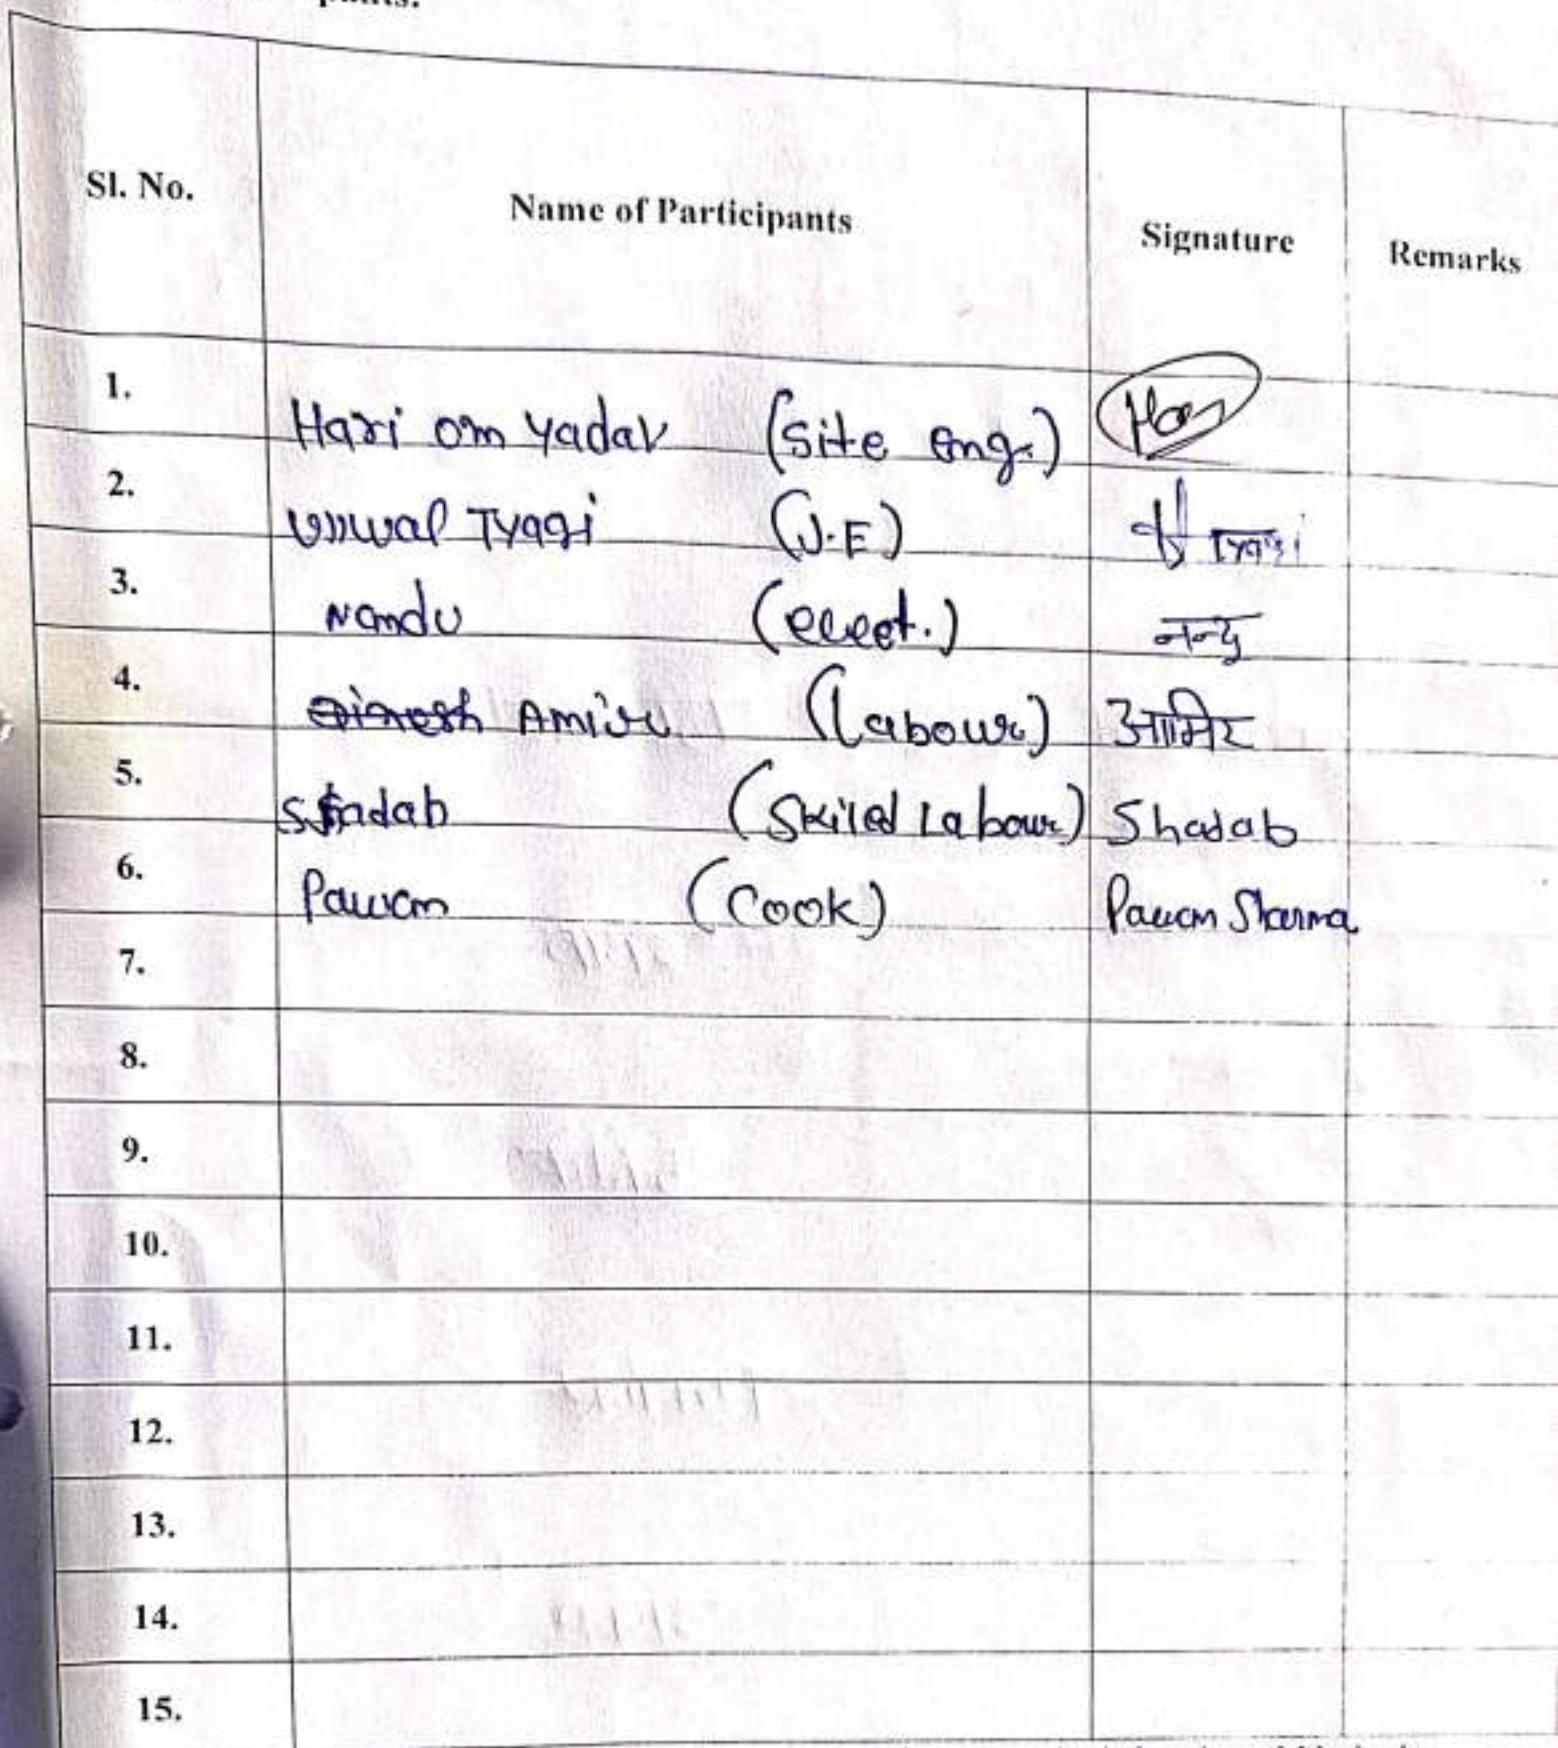 Sl. No. Name of Participants Signature Remarks
1. Hari om Yadav (Site eng.) Hari
2. Ujjwal Tyagi (J.E) Tyagi
3. Nandu (elect.) नन्दु
4. Dinesh Amir (Labour) आमिर
5. Shadab (Skiled Labour) Shadab
6. Pawan (Cook) Pawan Sharma
7.
8.
9.
10.
11.
12.
13.
14.
15.